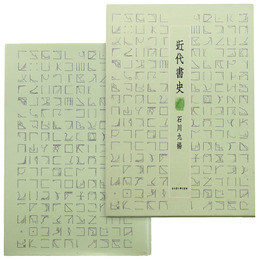 近代書史
石川九楊